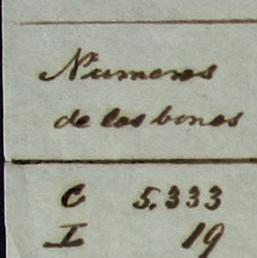 Numeros
de los bonos
C 5.333
I 19